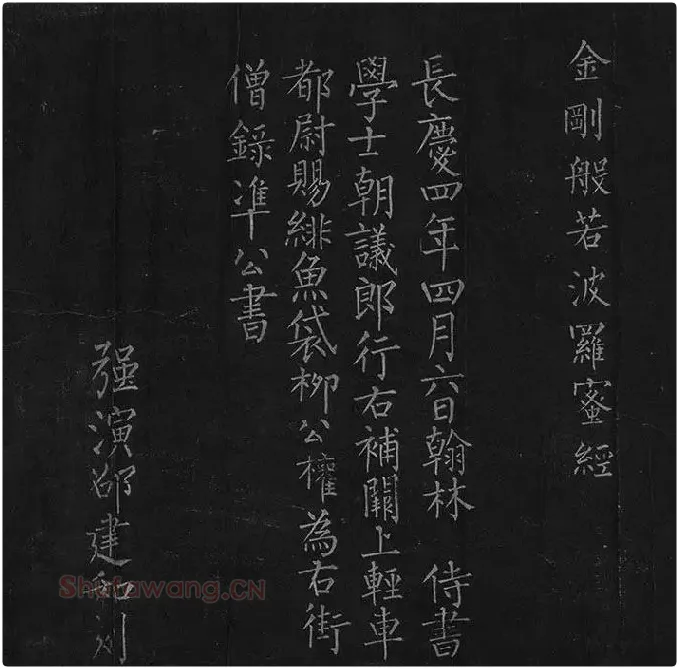 金剛般若波羅蜜經
長慶四年四月六日翰林侍書
學士朝議郎行右補闕上輕車
都尉賜緋魚袋柳公權為右街
僧錄準公書
强演邵建和刻
Shufawang.CN